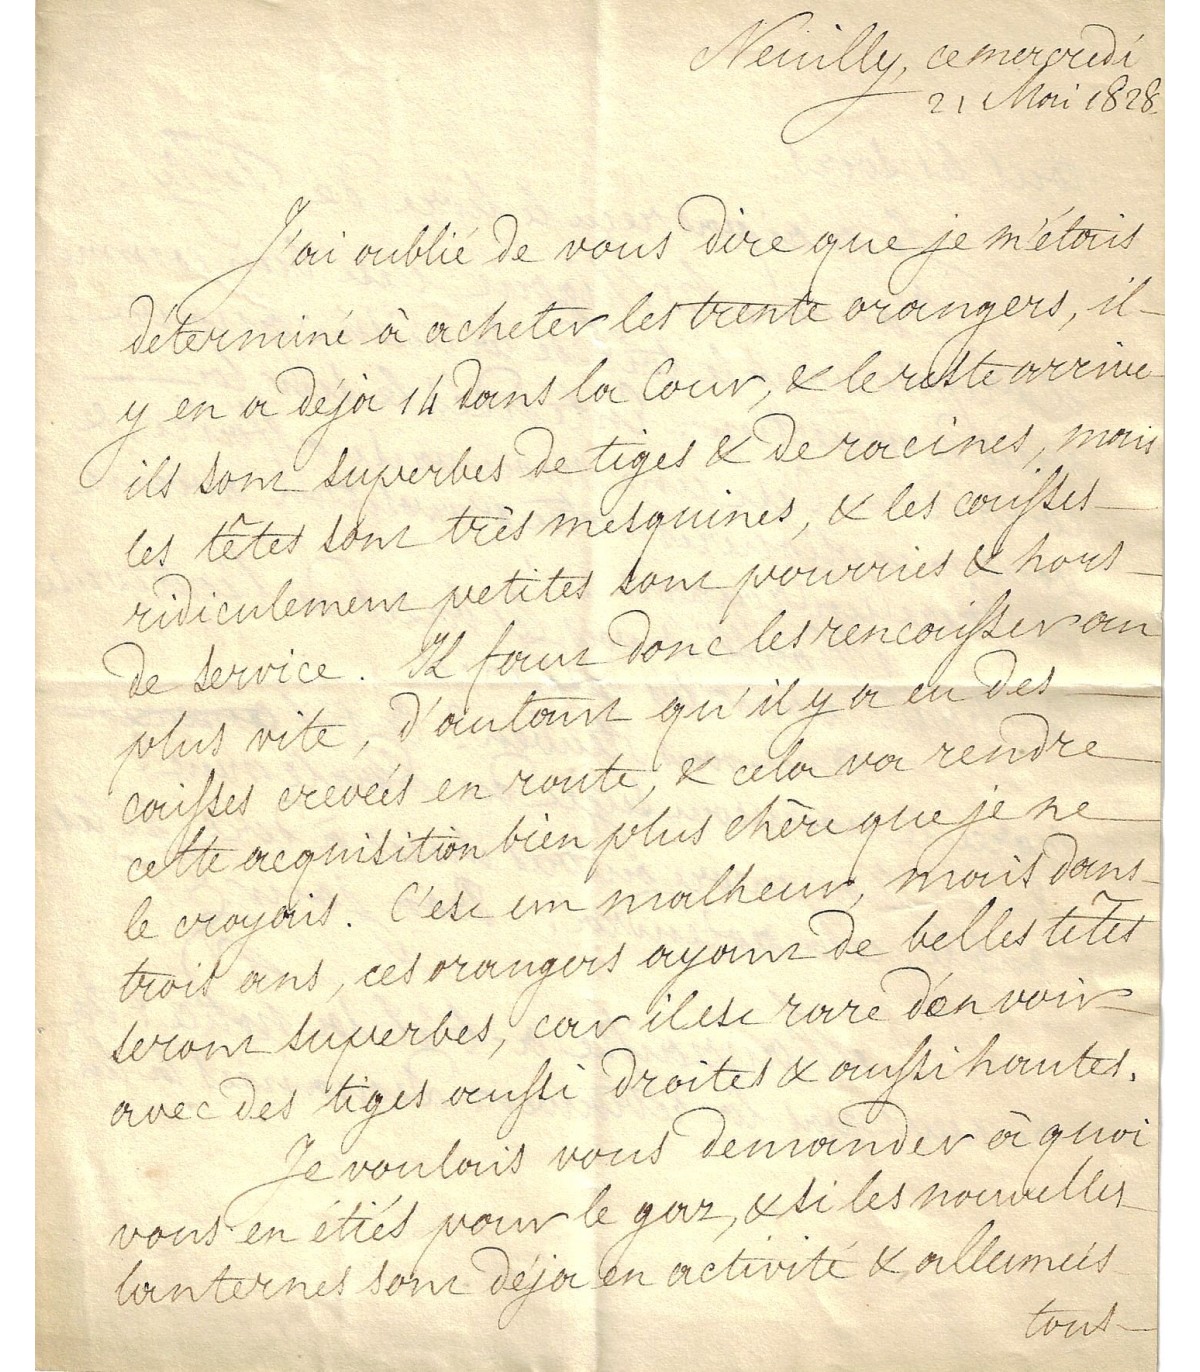 Neuilly, ce mercredi
21 Mai 1828.
J'ai oublié de vous dire que je m'étais
déterminé à acheter les trente orangers, il
y en a déjà 14 dans la Cour, & le reste arrive
ils sont superbes de tiges & de racines, mais
les têtes sont très mesquines, & les caisses
ridiculement petites sont pourries & hors
de service. Il faut donc les rencaisser au
plus vite, d'autant qu'il y a eu des
caisses crevées en route, & cela va rendre
cette acquisition bien plus chère que je ne
le croyais. C'est un malheur, mais dans
trois ans, ces orangers ayant de belles têtes
seront superbes, car il est rare d'en voir
avec des tiges aussi droites & aussi hautes.
Je voulais vous demander à quoi
vous en étiés pour le gaz, & si les nouvelles
lanternes sont déjà en activité & allumées
tous